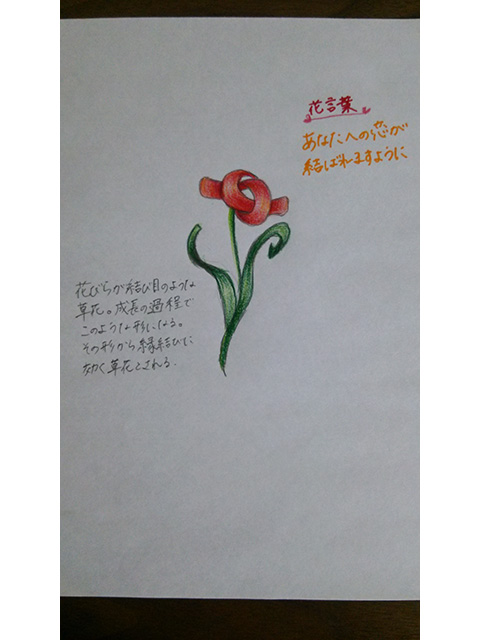 花言葉
あなたへの恋が
結ばれますように
花びらが結び目のような
草花。成長の過程で
このような形になる。
その形から縁結びに
効く草花とされる。